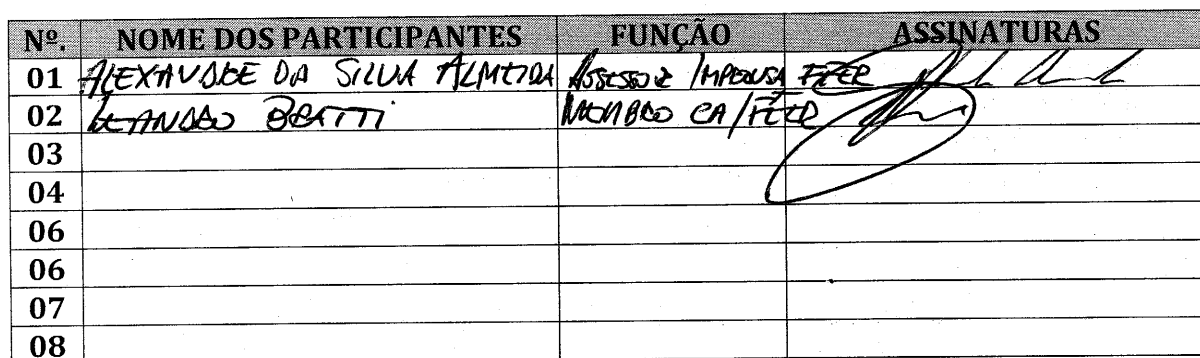 Nº. NOME DOS PARTICIPANTES FUNÇÃO ASSINATURAS
01 ALEXANDRE DA SILVA ALMEIDA ASSESSOR IMPRENSA
02 LEANDRO MEMBRO CA/
03
04
06
06
07
08